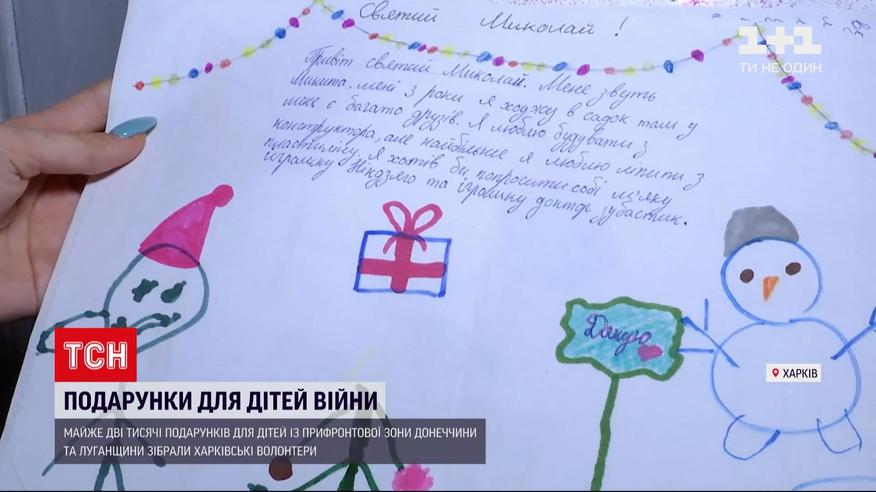 Святий Миколай!
1+1
ТИ НЕ ОДИН
Привіт святий Миколай. Мене звуть
Микита, мені 3 роки я ходжу в садок там у
мене є багато друзів. Я люблю будувати з
конструктора, але найбільше я люблю ліпити з
пластиліну. Я хотів би попросити собі м'яку
іграшку Ніндзяго та іграшку доктор зубастик.
Дякую
ХАРКІВ
ТСН
ПОДАРУНКИ ДЛЯ ДІТЕЙ ВІЙНИ
МАЙЖЕ ДВІ ТИСЯЧІ ПОДАРУНКІВ ДЛЯ ДІТЕЙ ІЗ ПРИФРОНТОВОЇ ЗОНИ ДОНЕЧЧИНИ
ТА ЛУГАНЩИНИ ЗІБРАЛИ ХАРКІВСЬКІ ВОЛОНТЕРИ